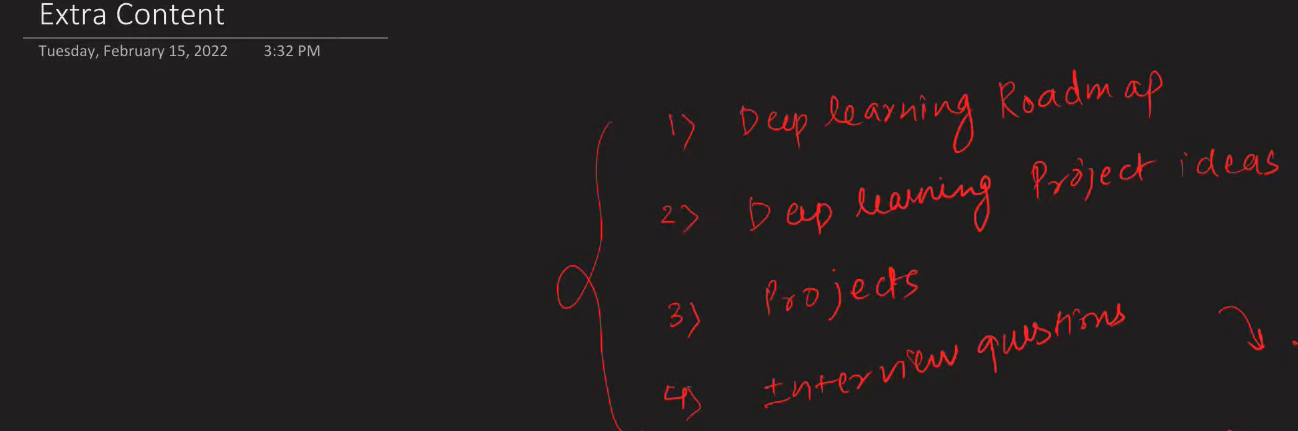 Extra Content
Tuesday, February 15, 2022 3:32 PM
1) Deep learning Roadmap
2) Deep learning Project ideas
3) Projects
4) Interview questions